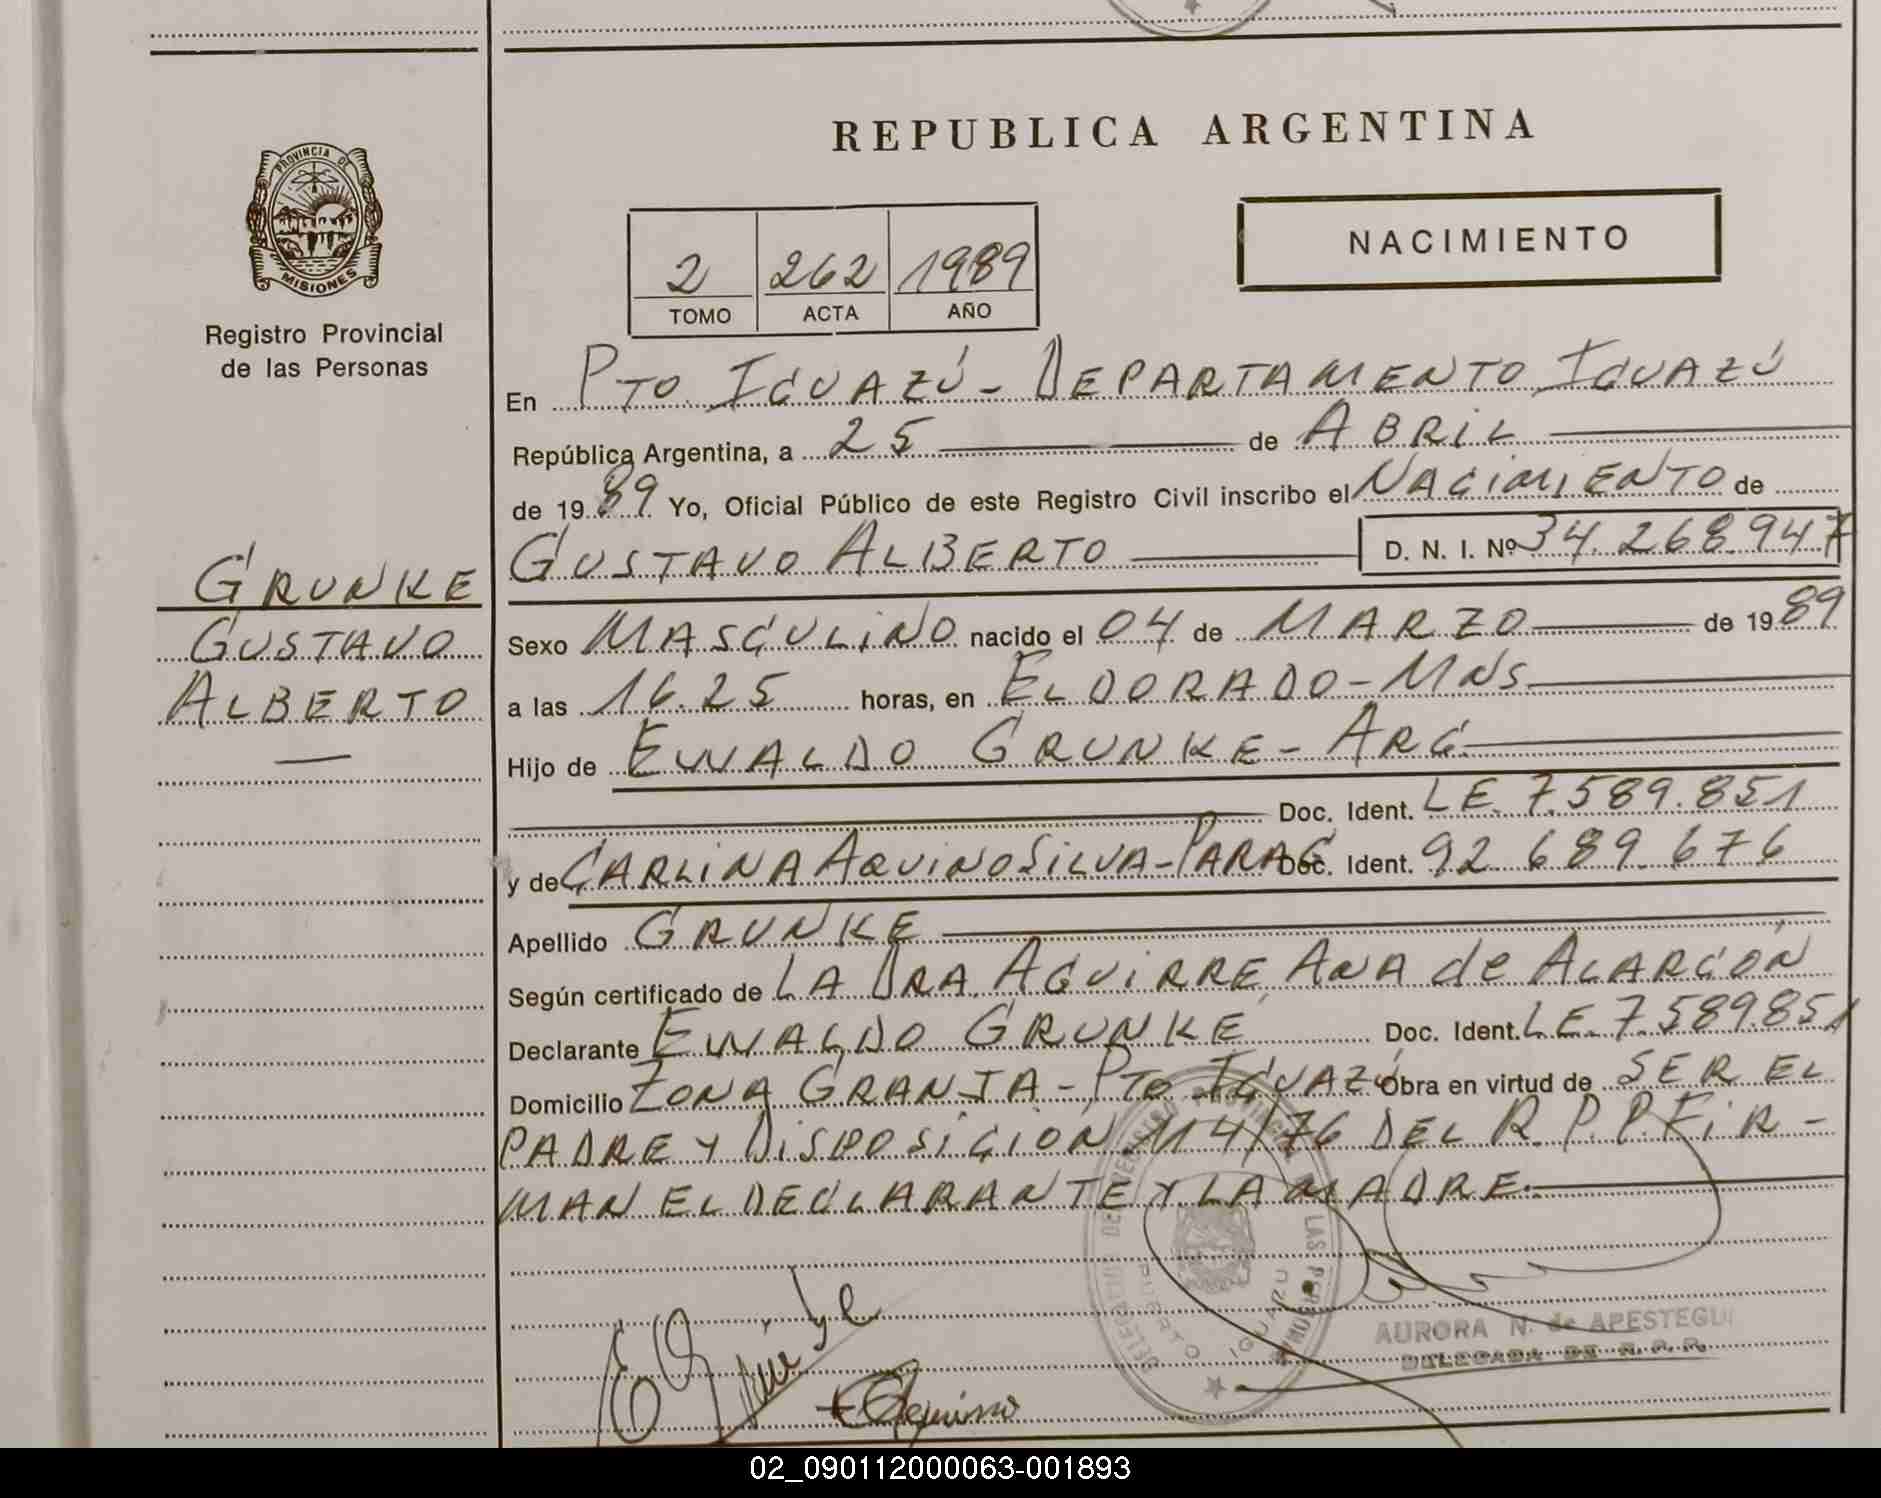 REPUBLICA ARGENTINA
PROVINCIA DE
MISIONES
Registro Provincial
de las Personas
NACIMIENTO
2 262 1989
TOMO ACTA AÑO
En PTO. IGUAZÚ - DEPARTAMENTO IGUAZÚ
República Argentina, a 25 de ABRIL
de 1989 Yo, Oficial Público de este Registro Civil inscribo el NACIMIENTO de
GUSTAVO ALBERTO D. N. I. Nº 34.268.947
GRUNKE
GUSTAVO
ALBERTO
Sexo MASCULINO nacido el 04 de MARZO de 1989
a las 16.25 horas, en ELDORADO - MNS
Hijo de EWALDO GRUNKE - ARG
Doc. Ident. LE. 7.589.851
y de CARLINA AQUINO SILVA - PARAG Doc. Ident. 92.689.676
Apellido GRUNKE
Según certificado de LA DRA. AGUIRRE, ANA de ALARCÓN
Declarante EWALDO GRUNKE Doc. Ident. LE. 7.589.851
Domicilio ZONA GRANJA - PTO IGUAZÚ Obra en virtud de SER EL
PADRE Y DISPOSICIÓN 114/76 DEL R.P.P. FIR-
MAN EL DECLARANTE Y LA MADRE.
DELEGACION DEL REGISTRO PROVINCIAL DE LAS PERSONAS
PUERTO IGUAZU
AURORA N. de APESTEGUI
DELEGADA DE R.P.P.
02_090112000063-001893